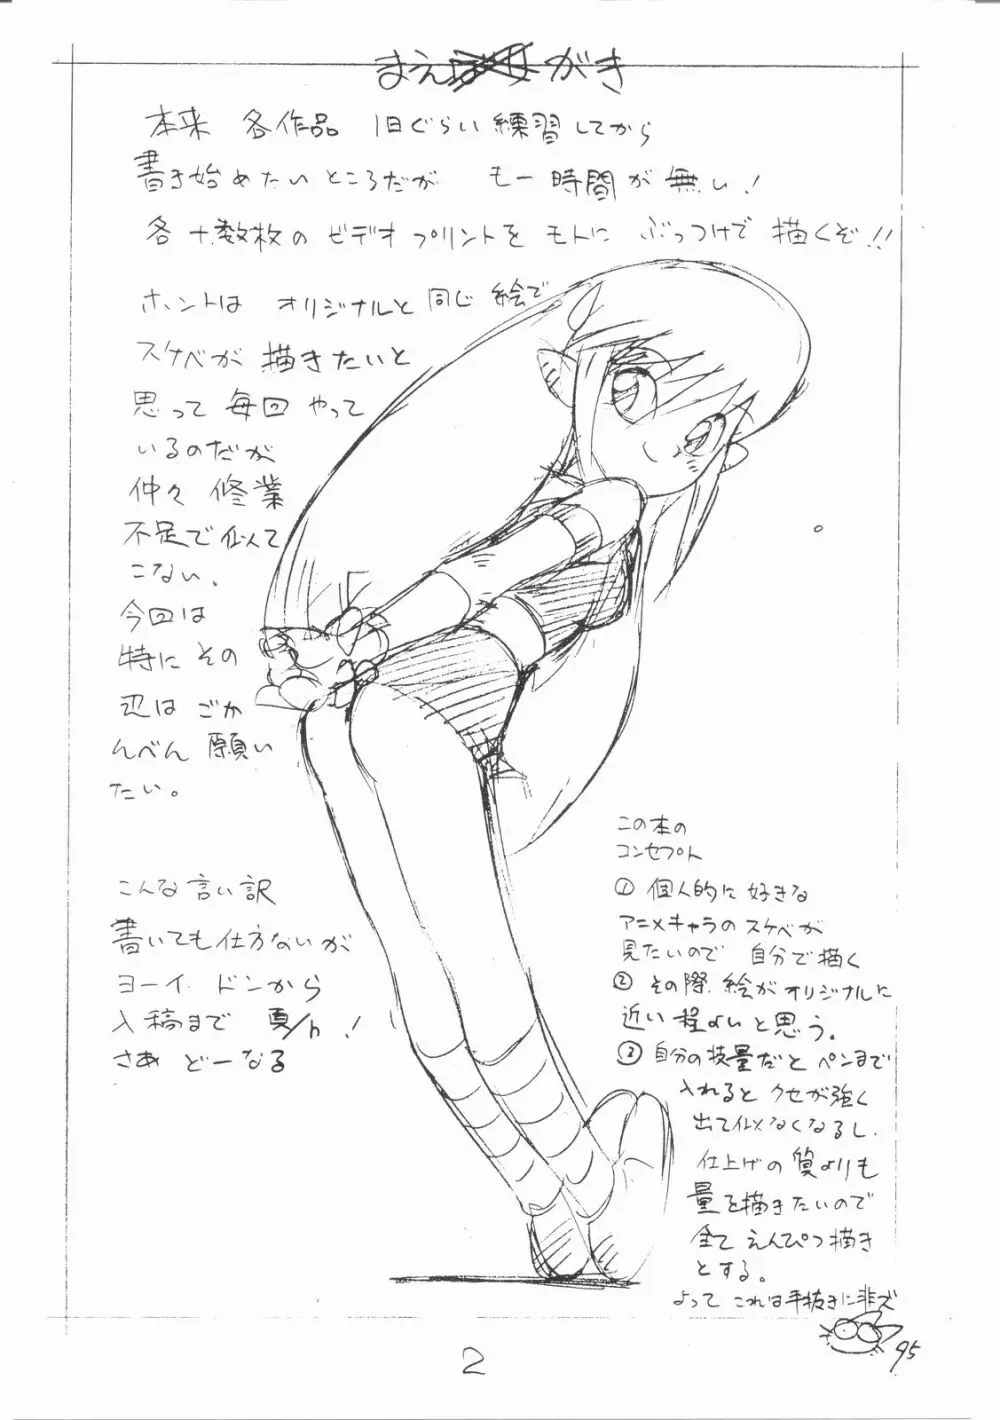 まえがき
本来 各作品 1日ぐらい練習してから
書き始めたいところだが もー時間が無い!
各十数枚のビデオプリントをモトに ぶっつけで描くぞ!!
ホントは オリジナルと同じ絵で
スケベが描きたいと
思って毎回やって
いるのだが
仲々修業
不足で似て
こない。
今回は
特にその
辺はごか
んべん願い
たい。
こんな言い訳
書いても仕方ないが
ヨーイ ドンから
入稿まで
さあ どーなる
この本の
コンセプト
① 個人的に好きな
アニメキャラのスケベが
見たいので 自分で描く
② その際 絵がオリジナルに
近い程よいと思う。
③ 自分の技量だとペンまで
入れるとクセが強く
出て似なくなるし、
仕上げの質よりも
量を描きたいので
全てえんぴつ描き
とする。
よって これは手抜きに非ズ
95
2